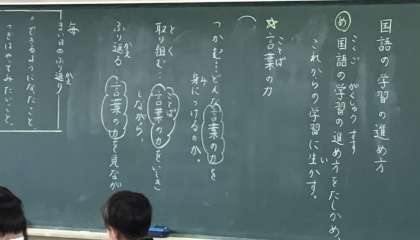 国語の学習の進め方
め 国語の学習の進め方をたしかめ、
これからの学習に生かす。
☆言葉の力
つかむ…どんな言葉の力を
身につけるのか。
取り組む…言葉の力をいしき
しながら、
ふり返る 言葉の力を見なが
毎
できるようになったこと。
つぎはやってみたいこと。